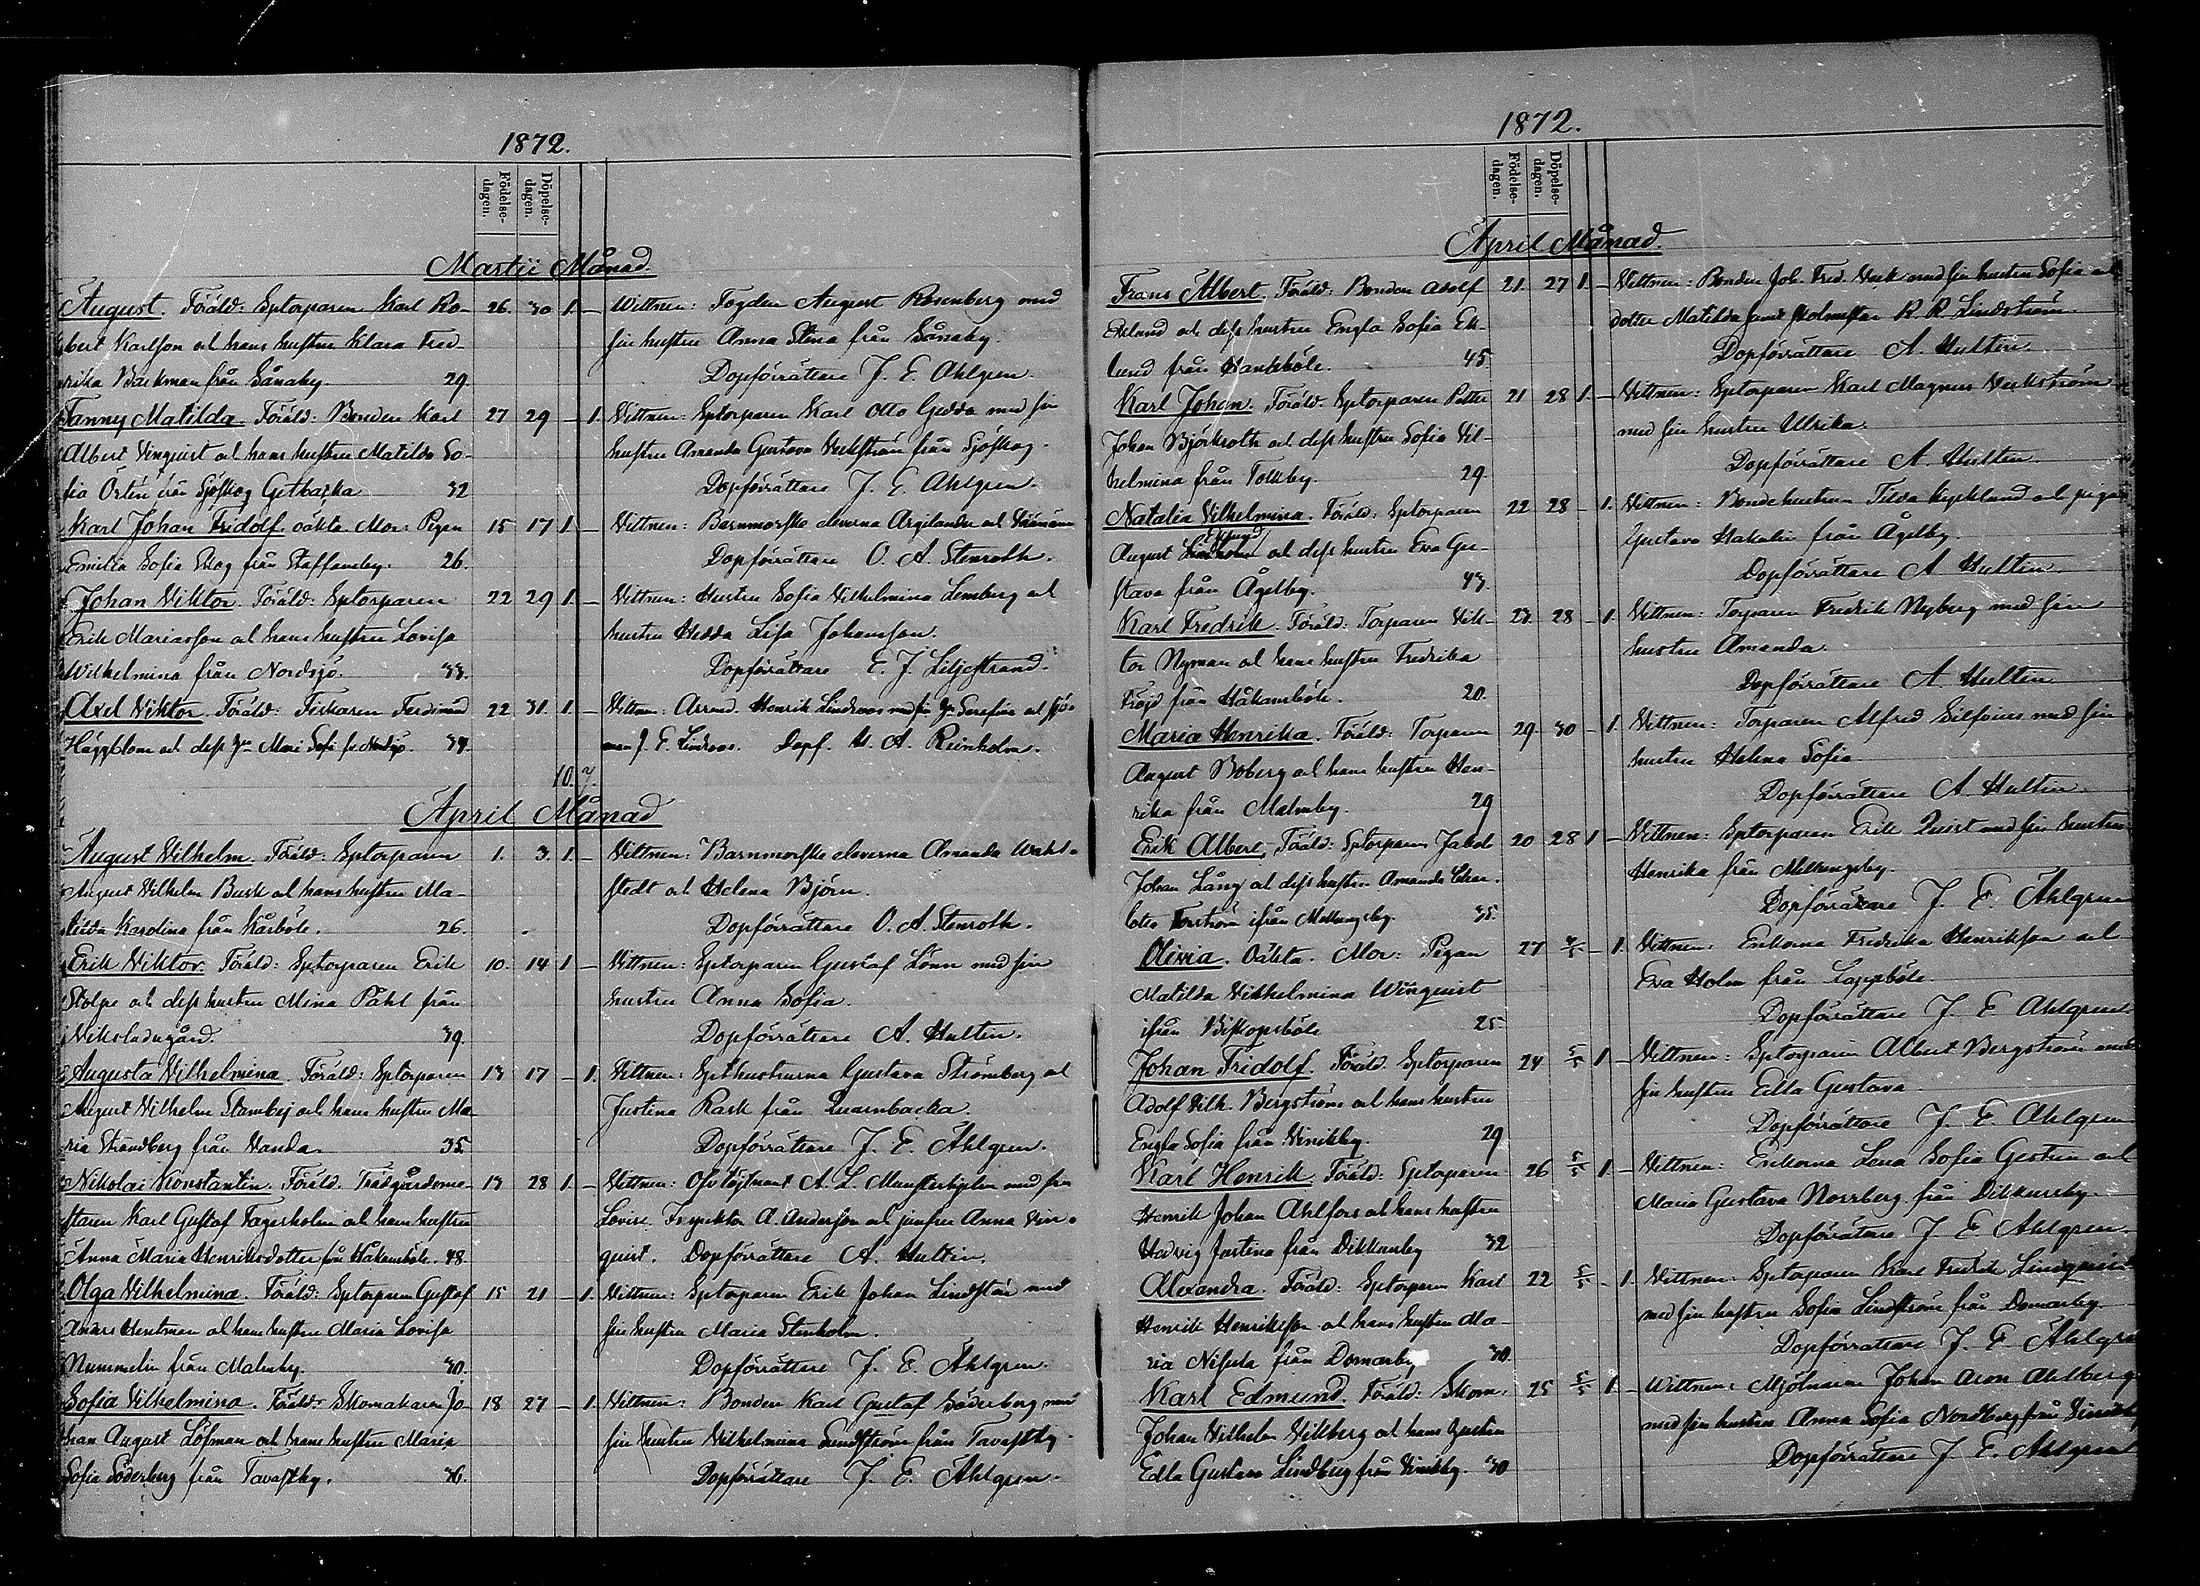 1872.
Födelse-dagen. Döpelse-dagen.
Martii Månad.
August. Föräld: Sptorparen Karl Ro- 26. 30 1. —
bert Karlsson och hans hustru Klara Fred-
rika Backman från Sånaby. 29.
Wittnen: Fogden August Rosenberg med
sin hustru Anna Stina från Sånaby.
Dopförrättare J. E. Ahlgren.
Fanny Matilda. Föräld: Bonden Karl 27 29 — 1.
Albert Vinquist och hans hustru Matilda So-
fia Östen från Sjöskog Getbacka 32
Vittnen: Sptorparen Karl Otto Gedda med sin
hustru Amanda Gustava Verkström från Sjöskog.
Dopförrättare J. E. Ahlgren.
Karl Johan Fridolf. oäkta Mor: Pigan 15 17 1 —
Emilia Sofia Skog från Staffansby. 26.
Vittnen: Barnmorske eleverna Argilander och
Dopförrättare O. A. Stenroth.
Johan Viktor. Föräld: Sptorparen 22 29 1. —
Erik Mariasson och hans hustru Lovisa
Wilhelmina från Nordsjö. 33.
Vittnen: Hustru Sofia Vilhelmina Lemberg och
hustru Hedda Lisa Johansson.
Dopförrättare E. J. Liljestrand.
Axel Viktor. Föräld: Fiskaren Ferdinand 22 31. 1. —
Häggblom och dess hu Mari Sofi fr Nordsjö. 34.
Vittnen: Arrend. Henrik Lindroos med sin hu Serafina och sjö-
man J. F. Lindroos. Dopf. H. A. Reinholm.
10. 7.
April Månad
August Vilhelm. Föräld: Sptorparen 1. 3. 1. —
August Vilhelm Busk och hans hustru Ma-
tilda Karolina från Kårböle. 26.
Vittnen: Barnmorske eleverna Amanda Wahl-
stedt och Helena Björn.
Dopförrättare O. A. Stenroth.
Erik Viktor. Föräld: Sptorparen Erik 10. 14 1 —
Stolpe och dess hustru Mina Påhl från
Nikoladugård. 39.
Vittnen: Sptorparen Gustaf Lönn med sin
hustru Anna Sofia.
Dopförrättare A. Hultin.
Augusta Vilhelmina. Föräld: Sptorparen 13 17 — 1.
August Vilhelm Stambej och hans hustru Ma-
ria Strandberg från Vanda. 35.
Vittnen: Spthustrurna Gustava Strömberg och
Justina Rask från Quarnbacka.
Dopförrättare J. E. Åhlgren.
Nikolai Konstantin. Föräld. Trädgårdsme- 13 28 1. —
staren Karl Gustaf Fagerholm och hans hustru
Anna Maria Henriksdotter från Håkansböle. 48.
Vittnen: Öfvlöjtnant A. L. Munsterhjelm med fru
Lovise. Inspektor A. Andersson och jungfru Anna Vin-
quist. Dopförrättare A. Hultin.
Olga Vilhelmina. Föräld: Sptorparen Gustaf 15 21 — 1.
Anders Hentman och hans hustru Maria Lovisa
Nummelin från Malmby. 30.
Vittnen: Sptorparen Erik Johan Lindstån med
sin hustru Maria Stenholm.
Dopförrättare J. E. Åhlgren.
Sofia Vilhelmina. Föräld: Skomakaren Jo- 18 27 — 1.
han August Löfman och hans hustru Maria
Sofia Söderberg från Tavastby. 36.
Vittnen: Bonden Karl Gustaf Söderberg med
sin hustru Vilhelmina Sundström från Tavastby.
Dopförrättare J. E. Åhlgren.
1872.
Födelse-dagen. Döpelse-dagen.
April Månad.
Frans Albert. Föräld: Bonden Adolf 21. 27 1. —
Eklund och dess hustru Engla Sofia Ek-
lund från Hanaböle. 45.
Vittnen: Bonden Joh. Fred. Verk med sin hustru Sofia och
dotter Matilda samt skolmästar R. R. Lindström.
Dopförrättare A. Hultin.
Karl Johan. Föräld. Sptorparen Petter 21 28 1. —
Johan Björkroth och dess hustru Sofia Vil-
helmina från Tolkby. 29.
Vittnen: Sptorparen Karl Magnus Verkström
med sin hustru Ulrika.
Dopförrättare A. Hultin.
Natalia Vilhelmina. Föräld: Sptorparen 22 28 — 1.
August och dess hustru Eva Gu-
stava från Ågelby. 43.
Vittnen: Bondehustrun Tilda Nyklund och pigan
Gustava Hakalin från Ågelby.
Dopförrättare A Hultin.
Karl Fredrik. Föräld: Torparen Vik- 23 28 — 1.
tor Nyman och hans hustru Fredrika
Fröjd från Håkansböle. 20.
Vittnen: Torparen Fredrik Nyberg med sin
hustru Amanda.
Dopförrättare A. Hultin.
Maria Henrika. Föräld: Torparen 29 30 — 1.
August Boberg och hans hustru Hen-
rika från Malmby. 29
Vittnen: Torparen Alfred Silfvius med sin
hustru Helena Sofia
Dopförrättare A. Hultin.
Erik Albert. Föräld: Sptorparen Jakob 20 28 1 —
Johan Lång och dess hustru Amanda Char-
lotta Forström ifrån Mellungsby. 35.
Vittnen: Sptorparen Erik Quist med sin hustru
Henrika från Mellungsby.
Dopförrättare J. E. Åhlgren
Olivia. Oäkta. Mor: Pigan 27 4/5 — 1.
Matilda Vilhelmina Winquist
ifrån Biskopsböle 25.
Vittnen: Enkorna Fredrika Henriksson och
Eva Holm från Lappböle.
Dopförrättare J. E. Åhlgren.
Johan Fridolf. Föräld. Sptorparen 24 5/5 1 —
Adolf Vilh. Bergström och hans hustru
Engla Sofia från Vinikby. 29
Vittnen: Sptorparen Albert Bergström med
sin hustru Edla Gustava
Dopförrättare J. E. Åhlgren
Karl Henrik. Föräld: Sptorparen 26 5/5 1. —
Henrik Johan Ahlfors och hans hustru
Hedvig Justina från Dickursby 32
Vittnen: Enkorna Lena Sofia Gestrin och
Maria Gustava Norrberg från Dickursby.
Dopförrättare J. E. Åhlgren.
Alexandra. Föräld: Sptorparen Karl 22 5/5 — 1.
Henrik Henriksson och hans hustru Ma-
ria Nisula från Domarby 30.
Vittnen: Sptorparen Karl Fredrik Lindquist
med sin hustru Sofia Lindström från Domarby.
Dopförrättare J. E. Åhlgre
Karl Edmund. Föräld: Skom. 25 5/5 1. —
Johan Vilhelm Villberg och hans hustru
Edla Gustava Lindberg från Vinikby. 30
Wittnen: Mjölnaren Johan Aron Ahlberg
med sin hustru Anna Sofia Nordberg från Vinikby
Dopförrättare J. E. Åhlgren